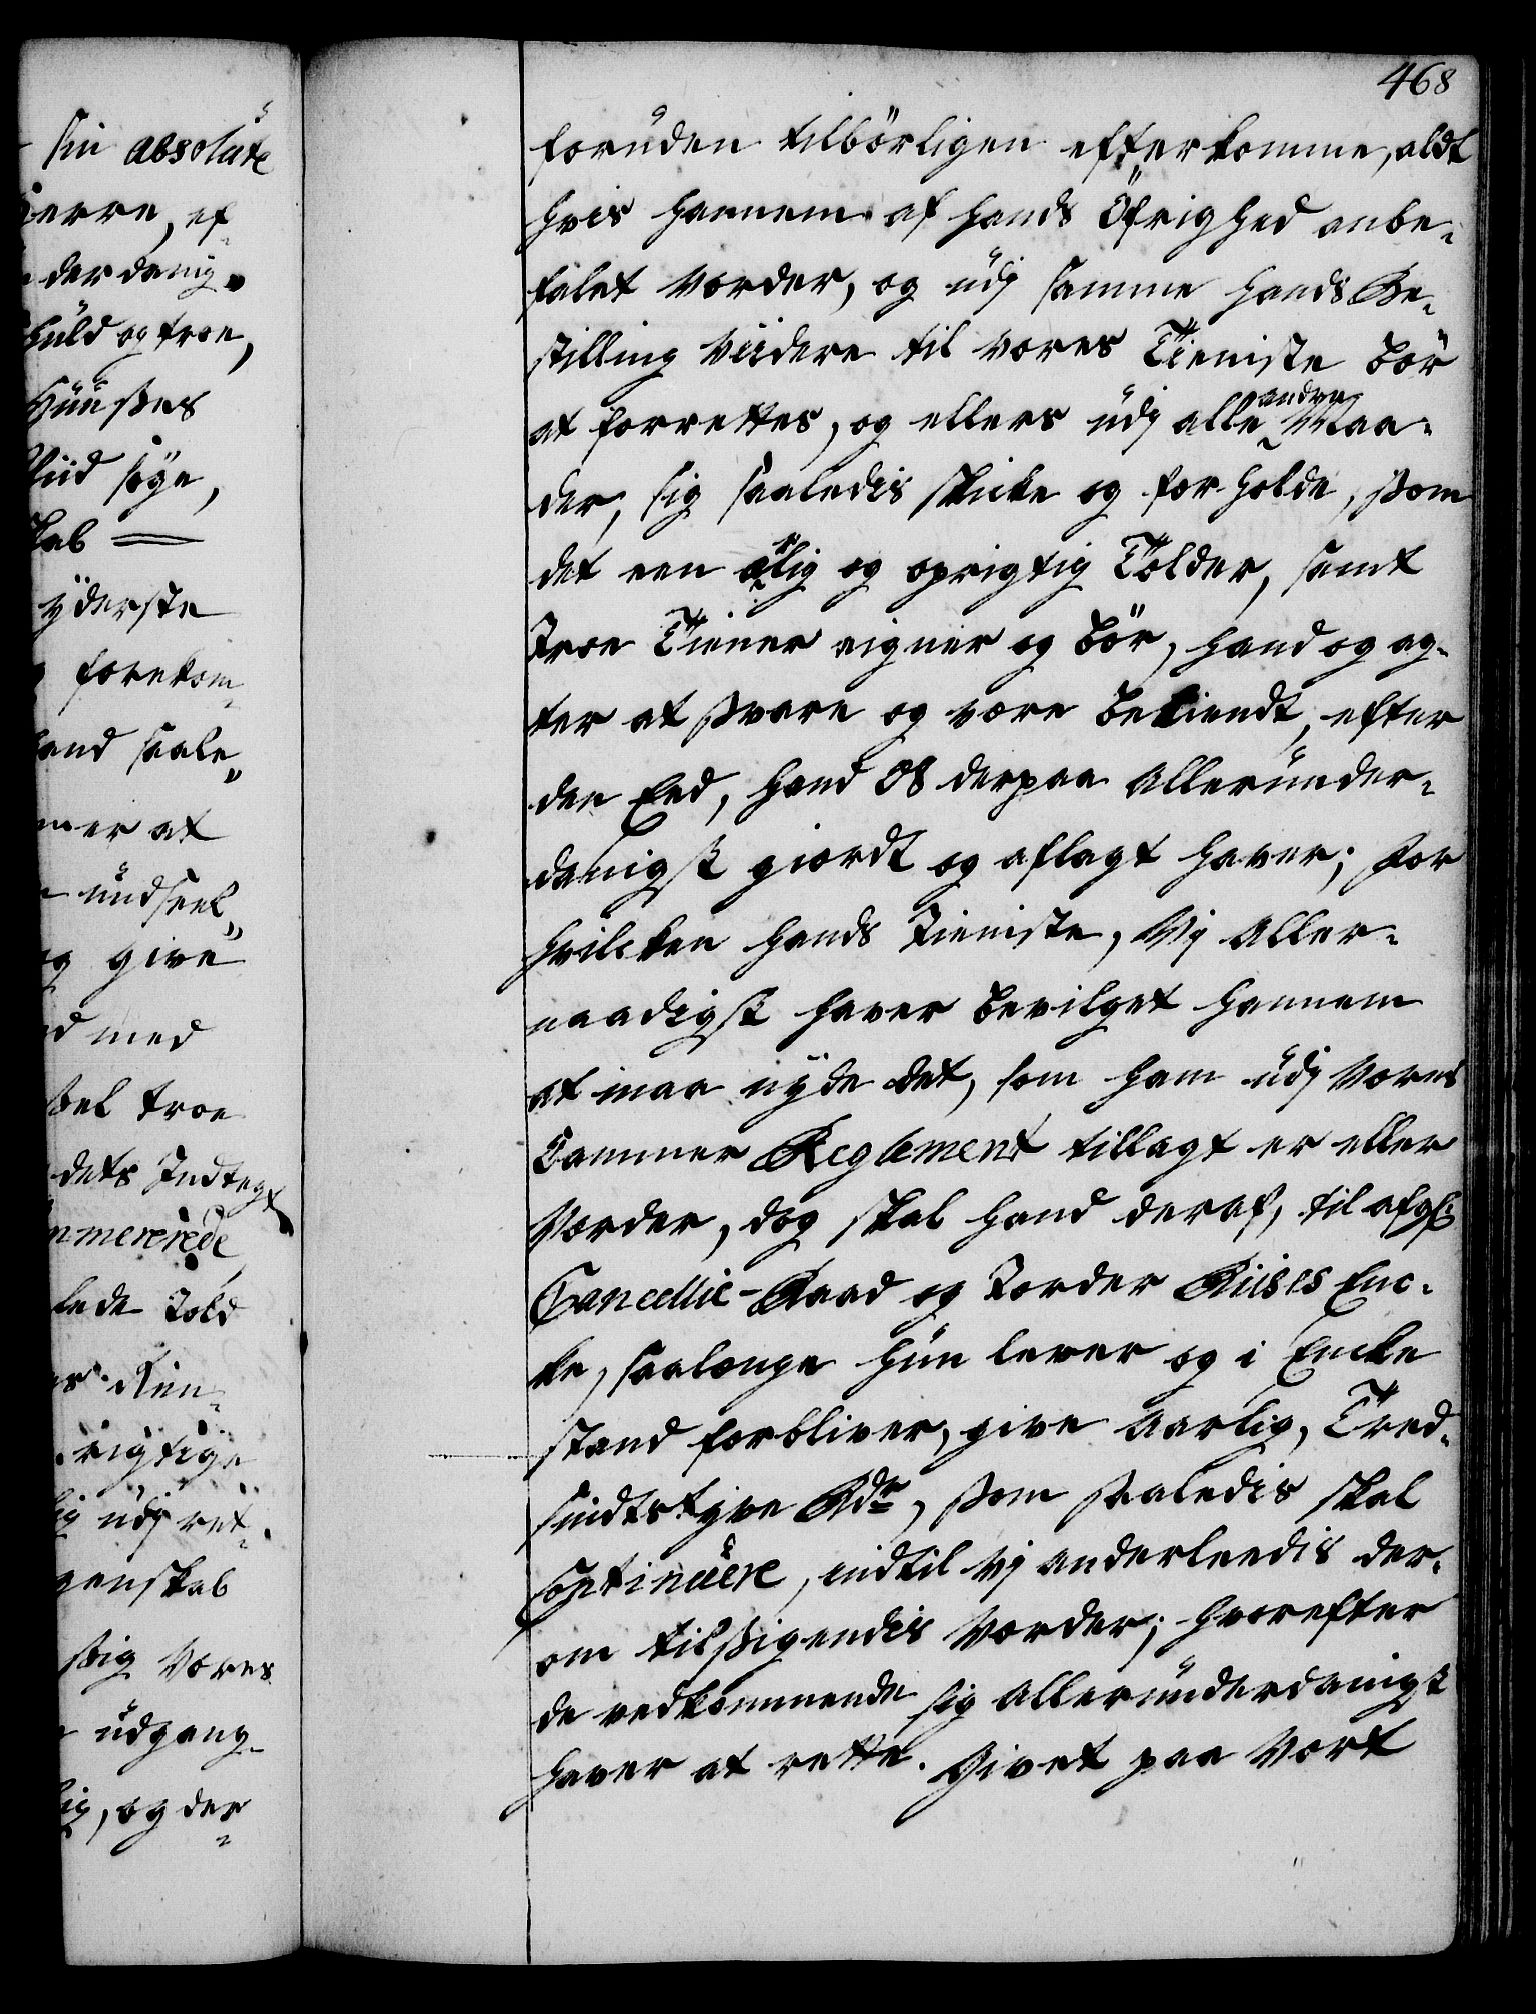 468
foruden tilbörligen efterkomme, aldt
hvis hannem af hands Öfrighed anbe-
falet vorder, og udj samme hands Be-
stilling viidere til vores Tieniste bör
at forrettes, og ellers udj alle andre Maa-
der, sig saaledis skicke og forholde, som
det een ærlig og oprigtig Tolder, samt
Troe Tiener eigner og bör, hand og ag-
ter at svare og være bekiendt, efter
den Eed, hand OS derpaa allerunder-
danigst giordt og aflagt haver; for
hvilcken hands Tieniste, Vj aller-
naadigst haver bevilget hannem
at maa nyde det, som ham udj Vores
Cammer Reglement tillagt er eller
vorder, dog skal hand deraf, til afgl:
Cancellie-Raad og Torder Riises Enc-
ke, saalænge hun lever og i Encke
stand forbliver, give Aarlig, Tred-
sindtstyve Rdr, som saaledis skal
Continuere, indtil vj anderleedis der-
om tilsigendis vorder; hvorefter
de vedkommende sig allerunderdanigst
haver at rette. Givet paa Vort
sin absolute
herre, ef-
derdanig-
huld og troe,
Huuses
fliid söge,
skab
yderste
forekom-
hand saale-
mer at
undseel-
og give
med
vel troe
dets Indtegt
mererede
lede Told
rigtige
udj ret-
genskab
sig Vores
udgang-
lig, og der-